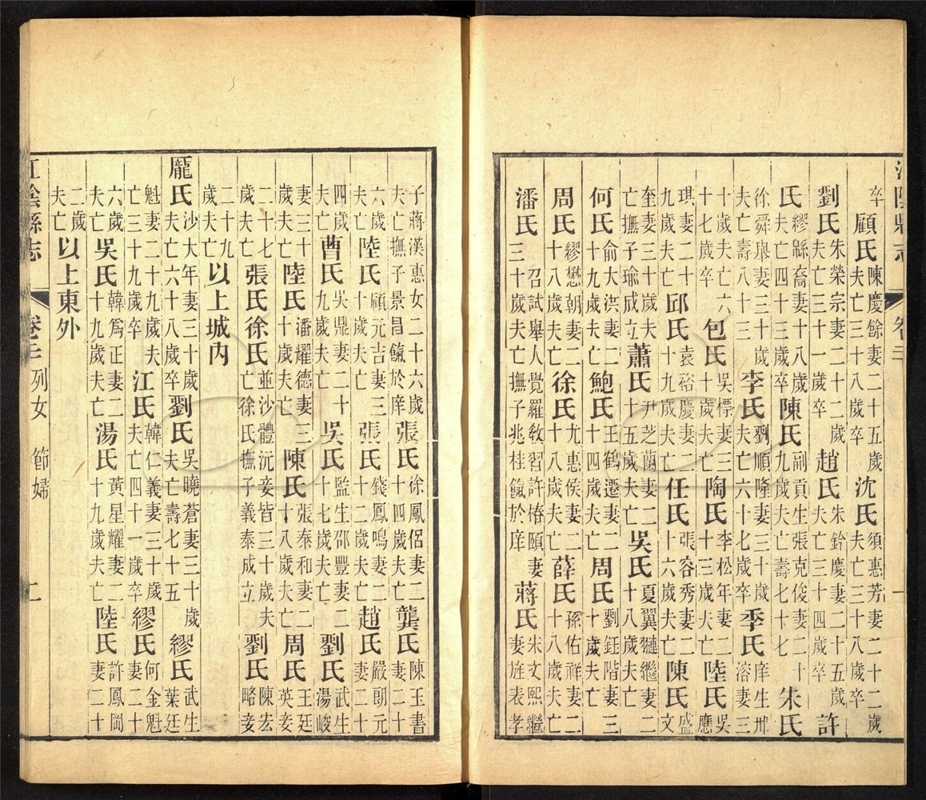 江陰縣志 卷二 一
卒 顧氏陳慶餘妻二十五歲夫亡三十八歲卒 沈氏須惠芳妻二十二歲夫亡三十八歲卒
劉氏朱榮宗妻二十二歲夫亡三十一歲卒 趙氏朱鈴慶妻二十五歲夫亡三十四歲卒 許
氏繆繇裔妻十八歲夫亡四十三歲卒 陳氏副貢生張克俊妻二十九歲夫亡壽七十七 朱氏
徐舜舉妻三十歲夫亡壽八十三 李氏劉順隆妻三十歲夫亡六十七歲卒 季氏庠生邢溶妻三
十歲夫亡六十七歲卒 包氏吳標妻三十歲夫亡 陶氏李松年妻二十三歲夫亡 陸氏吳應
琪妻二十九歲夫亡 邱氏袁裕慶妻二十九歲夫亡 任氏張容秀妻二十六歲夫亡 陳氏盛文
奎妻三十歲夫亡撫子瑜成立 蕭氏尹芝蘭妻二十五歲夫亡 吳氏夏翼繼妻二十八歲夫亡
何氏俞大洪妻二十九歲夫亡 鮑氏王鶴遷妻二十四歲夫亡 周氏劉鈺階妻三十歲夫亡
周氏繆懋朝妻二十八歲夫亡 徐氏尤惠侯妻二十八歲夫亡 薛氏孫佑祥妻二十八歲夫亡
潘氏召試舉人覺羅敎習許椿頤妻三十歲夫亡撫子兆桂餼於庠 蔣氏朱文熙繼妻旌表孝
子蔣漢惠女二十六歲夫亡撫子景昌餼於庠 張氏徐鳳侶妻二十四歲夫亡 龔氏陳玉書妻二十
六歲夫亡 陸氏顧元吉妻三十歲夫亡 張氏錢鳳鳴妻二十歲夫亡 趙氏嚴朗元妻二十
四歲夫亡 曹氏吳鼎妻二十九歲夫亡 吳氏監生邵豐妻二十七歲夫亡 劉氏武生湯峻
妻三十歲夫亡 陸氏潘耀德妻三十歲夫亡 陳氏張泰和妻二十八歲夫亡 周氏王廷英妾
二十七歲夫亡 張氏徐氏並沙體沅妾皆三十歲夫亡徐氏撫子義泰成立 劉氏陳宏略妾
二十九歲夫亡 以上城內
龐氏沙大年妻三十歲夫亡六十八歲卒 劉氏吳曉蒼妻三十歲夫亡壽七十五 繆氏武生葉廷
魁妻二十九歲夫亡三十九歲卒 江氏韓仁義妻三十歲夫亡四十一歲卒 繆氏何金魁妻二十
六歲夫亡 吳氏韓爲正妻二十九歲夫亡 湯氏黃星耀妻二十九歲夫亡 陸氏許鳳岡妻二十
二歲夫亡 以上東外
江陰縣志 卷二 列女 節婦 二